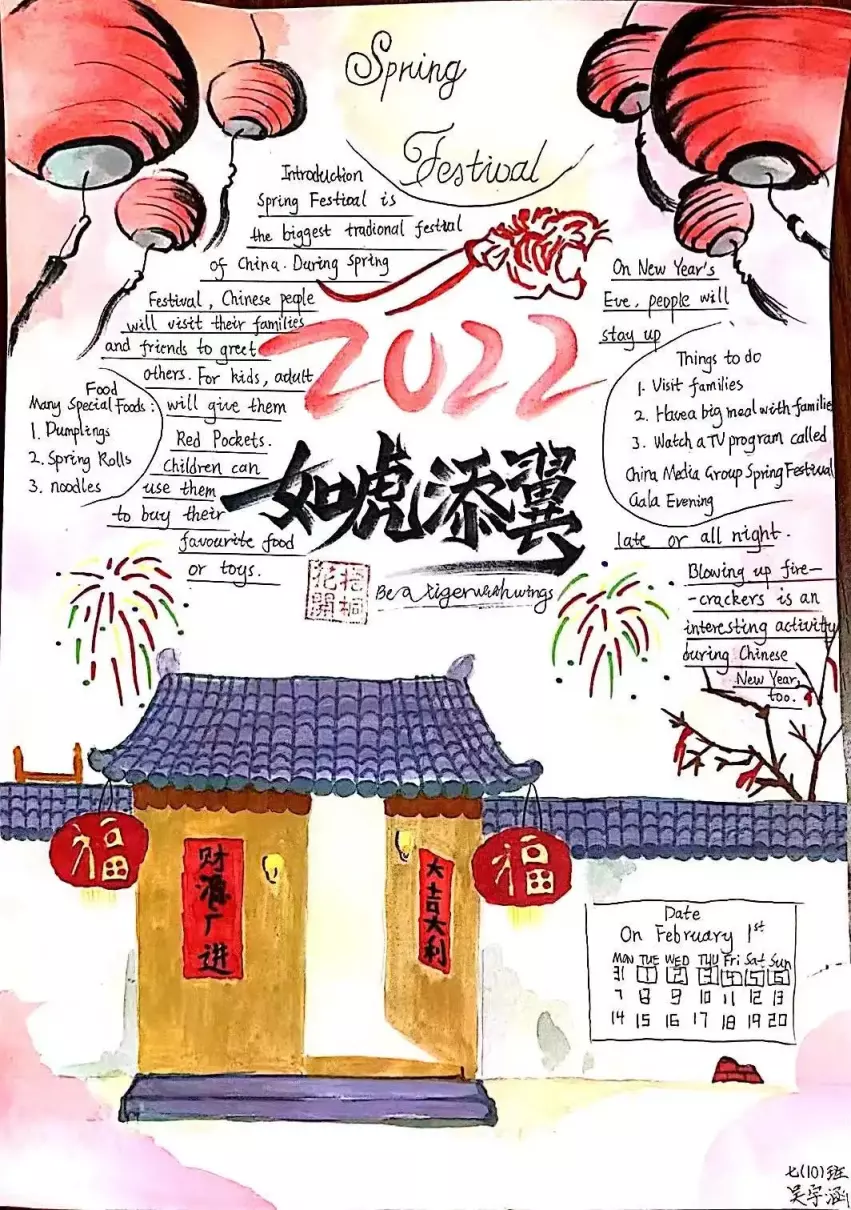 Spring
Festival
Introduction
Spring Festival is
the biggest tradional festival
of China. During Spring
Festival, Chinese people
will visit their families
and friends to greet
others. For kids, adult
will give them
Red Pockets.
Children can
use them
to buy their
favourite food
or toys.
Food
Many Special Foods:
1. Dumplings
2. Spring Rolls
3. noodles
2022
如虎添翼
Be a tiger with wings
梧桐
花開
On New Year's
Eve, people will
stay up
late or all night.
Things to do
1. Visit families
2. Have a big meal with families
3. Watch a TV program called
China Media Group Spring Festival
Gala Evening
Blowing up fire-
-crackers is an
interesting activity
during Chinese
New Year,
too.
福
财源广进
大吉大利
福
Date
On February 1st
MON TUE WED THU Fri Sat Sun
31 1 2 3 4 5 6
7 8 9 10 11 12 13
14 15 16 17 18 19 20
七(10)班
吴宇涵